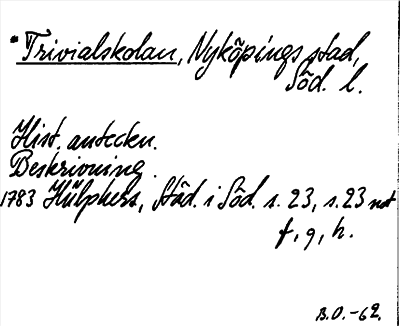 *Trivialskolan, Nyköpings stad,
Söd. l.
Hist. anteckn.
Beskrivning.
1783 Hülphers, Städ. i Söd. s. 23, s. 23 not
f, g, h.
B.O.-62.